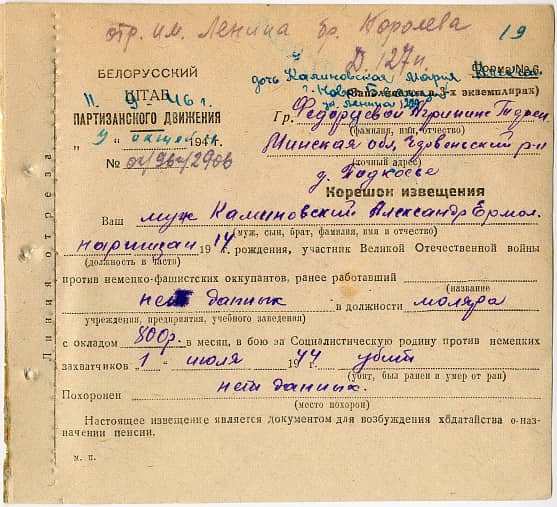 отр. им. Ленина бр. Королева
19
Д. 127 п.
Форма № 6
БЕЛОРУССКИЙ
дочь Калиновская Мария
(Заполняется в 3-х экземплярах)
ШТАБ
11 9-46 г.
ул. Ленина
ПАРТИЗАНСКОГО ДВИЖЕНИЯ
Гр. Федоруевой
(фамилия, имя, отчество)
"9" октября 194 г.
Минская обл. р-н
№
(точный адрес)
д.
Корешок извещения
Ваш муж Калиновский Александр Ермол.
(муж, сын, брат, фамилия, имя и отчество)
партизан 1914 рождения, участник Великой Отечественной войны
(должность в части)
против немецко-фашистских оккупантов, ранее работавший
(название
нет данных в должности моляра
учреждения, предприятия, учебного заведения)
с окладом 800 р. в месяц, в бою за Социалистическую родину против немецких
захватчиков "1" июля 1944 убит
(убит, был ранен и умер от ран)
Похоронен нет данных.
(место похорон)
Настоящее извещение является документом для возбуждения ходатайства о назначении пенсии.
м. п.
Линия отреза